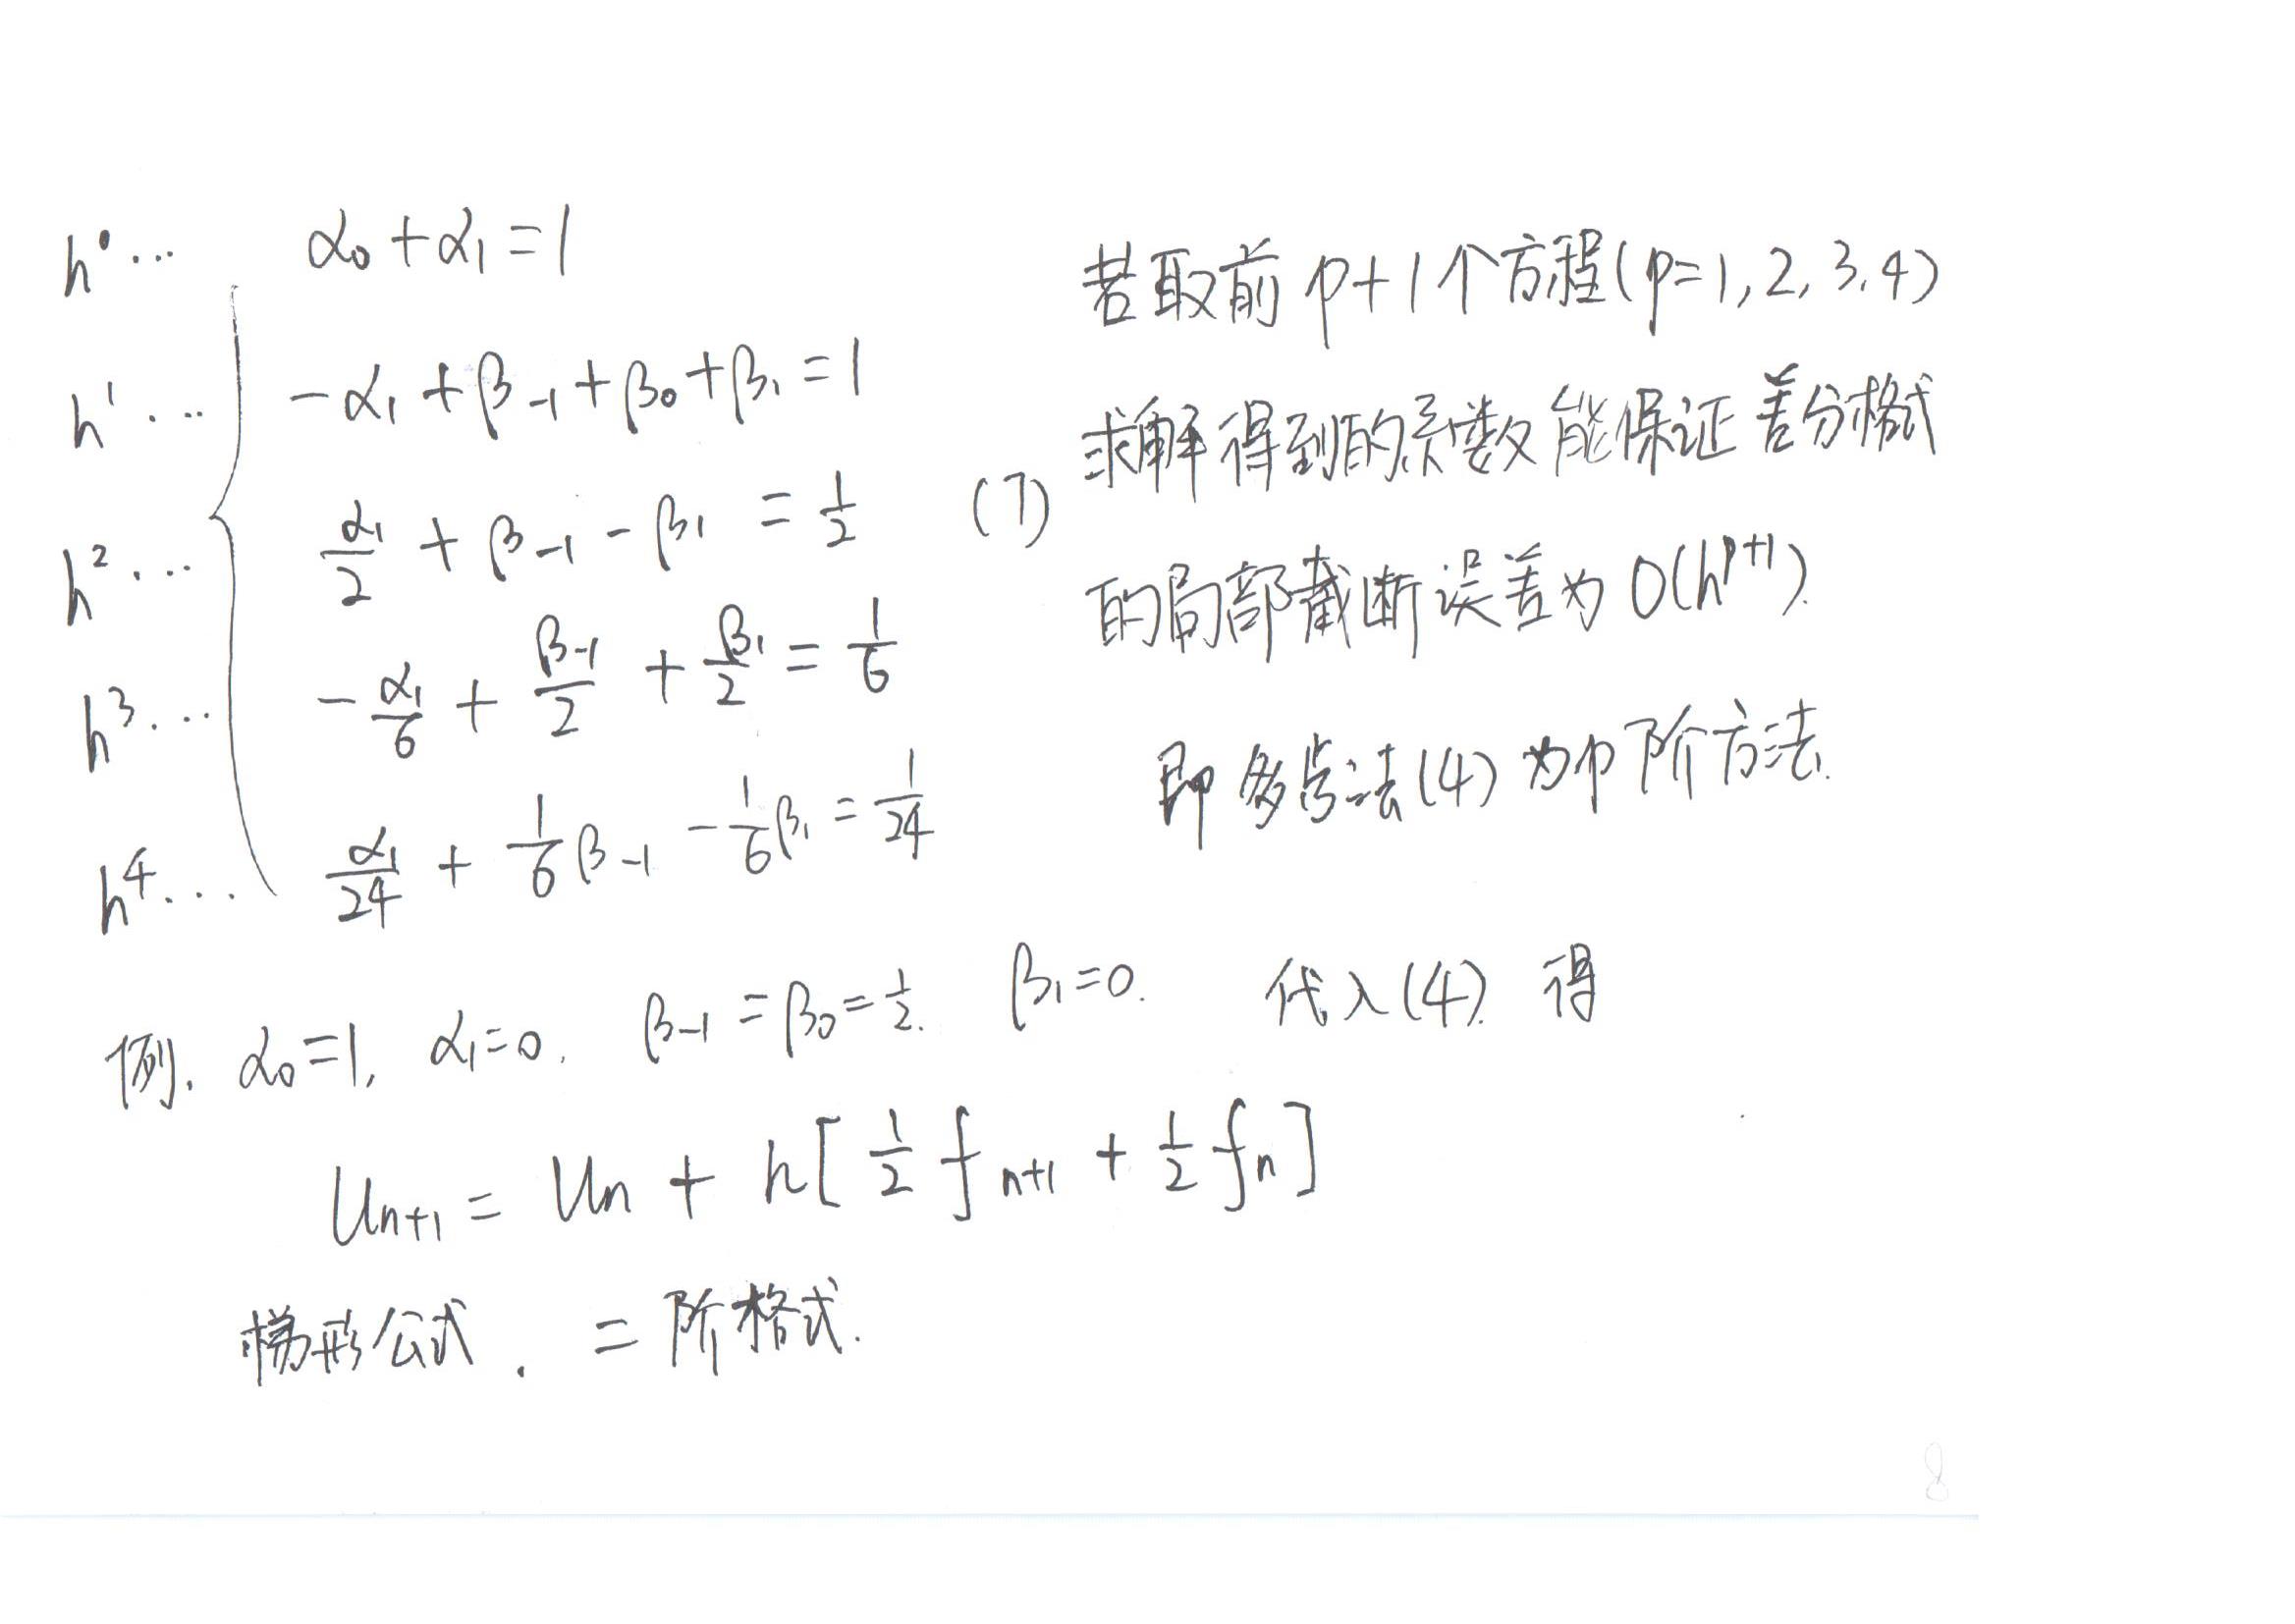 h⁰ ··· α₀ + α₁ = 1
h¹ ··· -α₁ + β₋₁ + β₀ + β₁ = 1
h² ··· α₁/2 + β₋₁ - β₁ = 1/2 (7)
h³ ··· -α₁/6 + β₋₁/2 + β₁/2 = 1/6
h⁴ ··· α₁/24 + 1/6 β₋₁ - 1/6 β₁ = 1/24
若取前 p+1个方程(p=1,2,3,4)
求解得到的系数能保证差分格式
的局部截断误差为 O(hᵖ⁺¹).
即多步法(4)为p阶方法.
例. α₀=1, α₁=0, β₋₁=β₀=1/2. β₁=0. 代入(4). 得
Uₙ₊₁ = Uₙ + h[1/2 fₙ₊₁ + 1/2 fₙ]
梯形公式. 二阶格式.
8